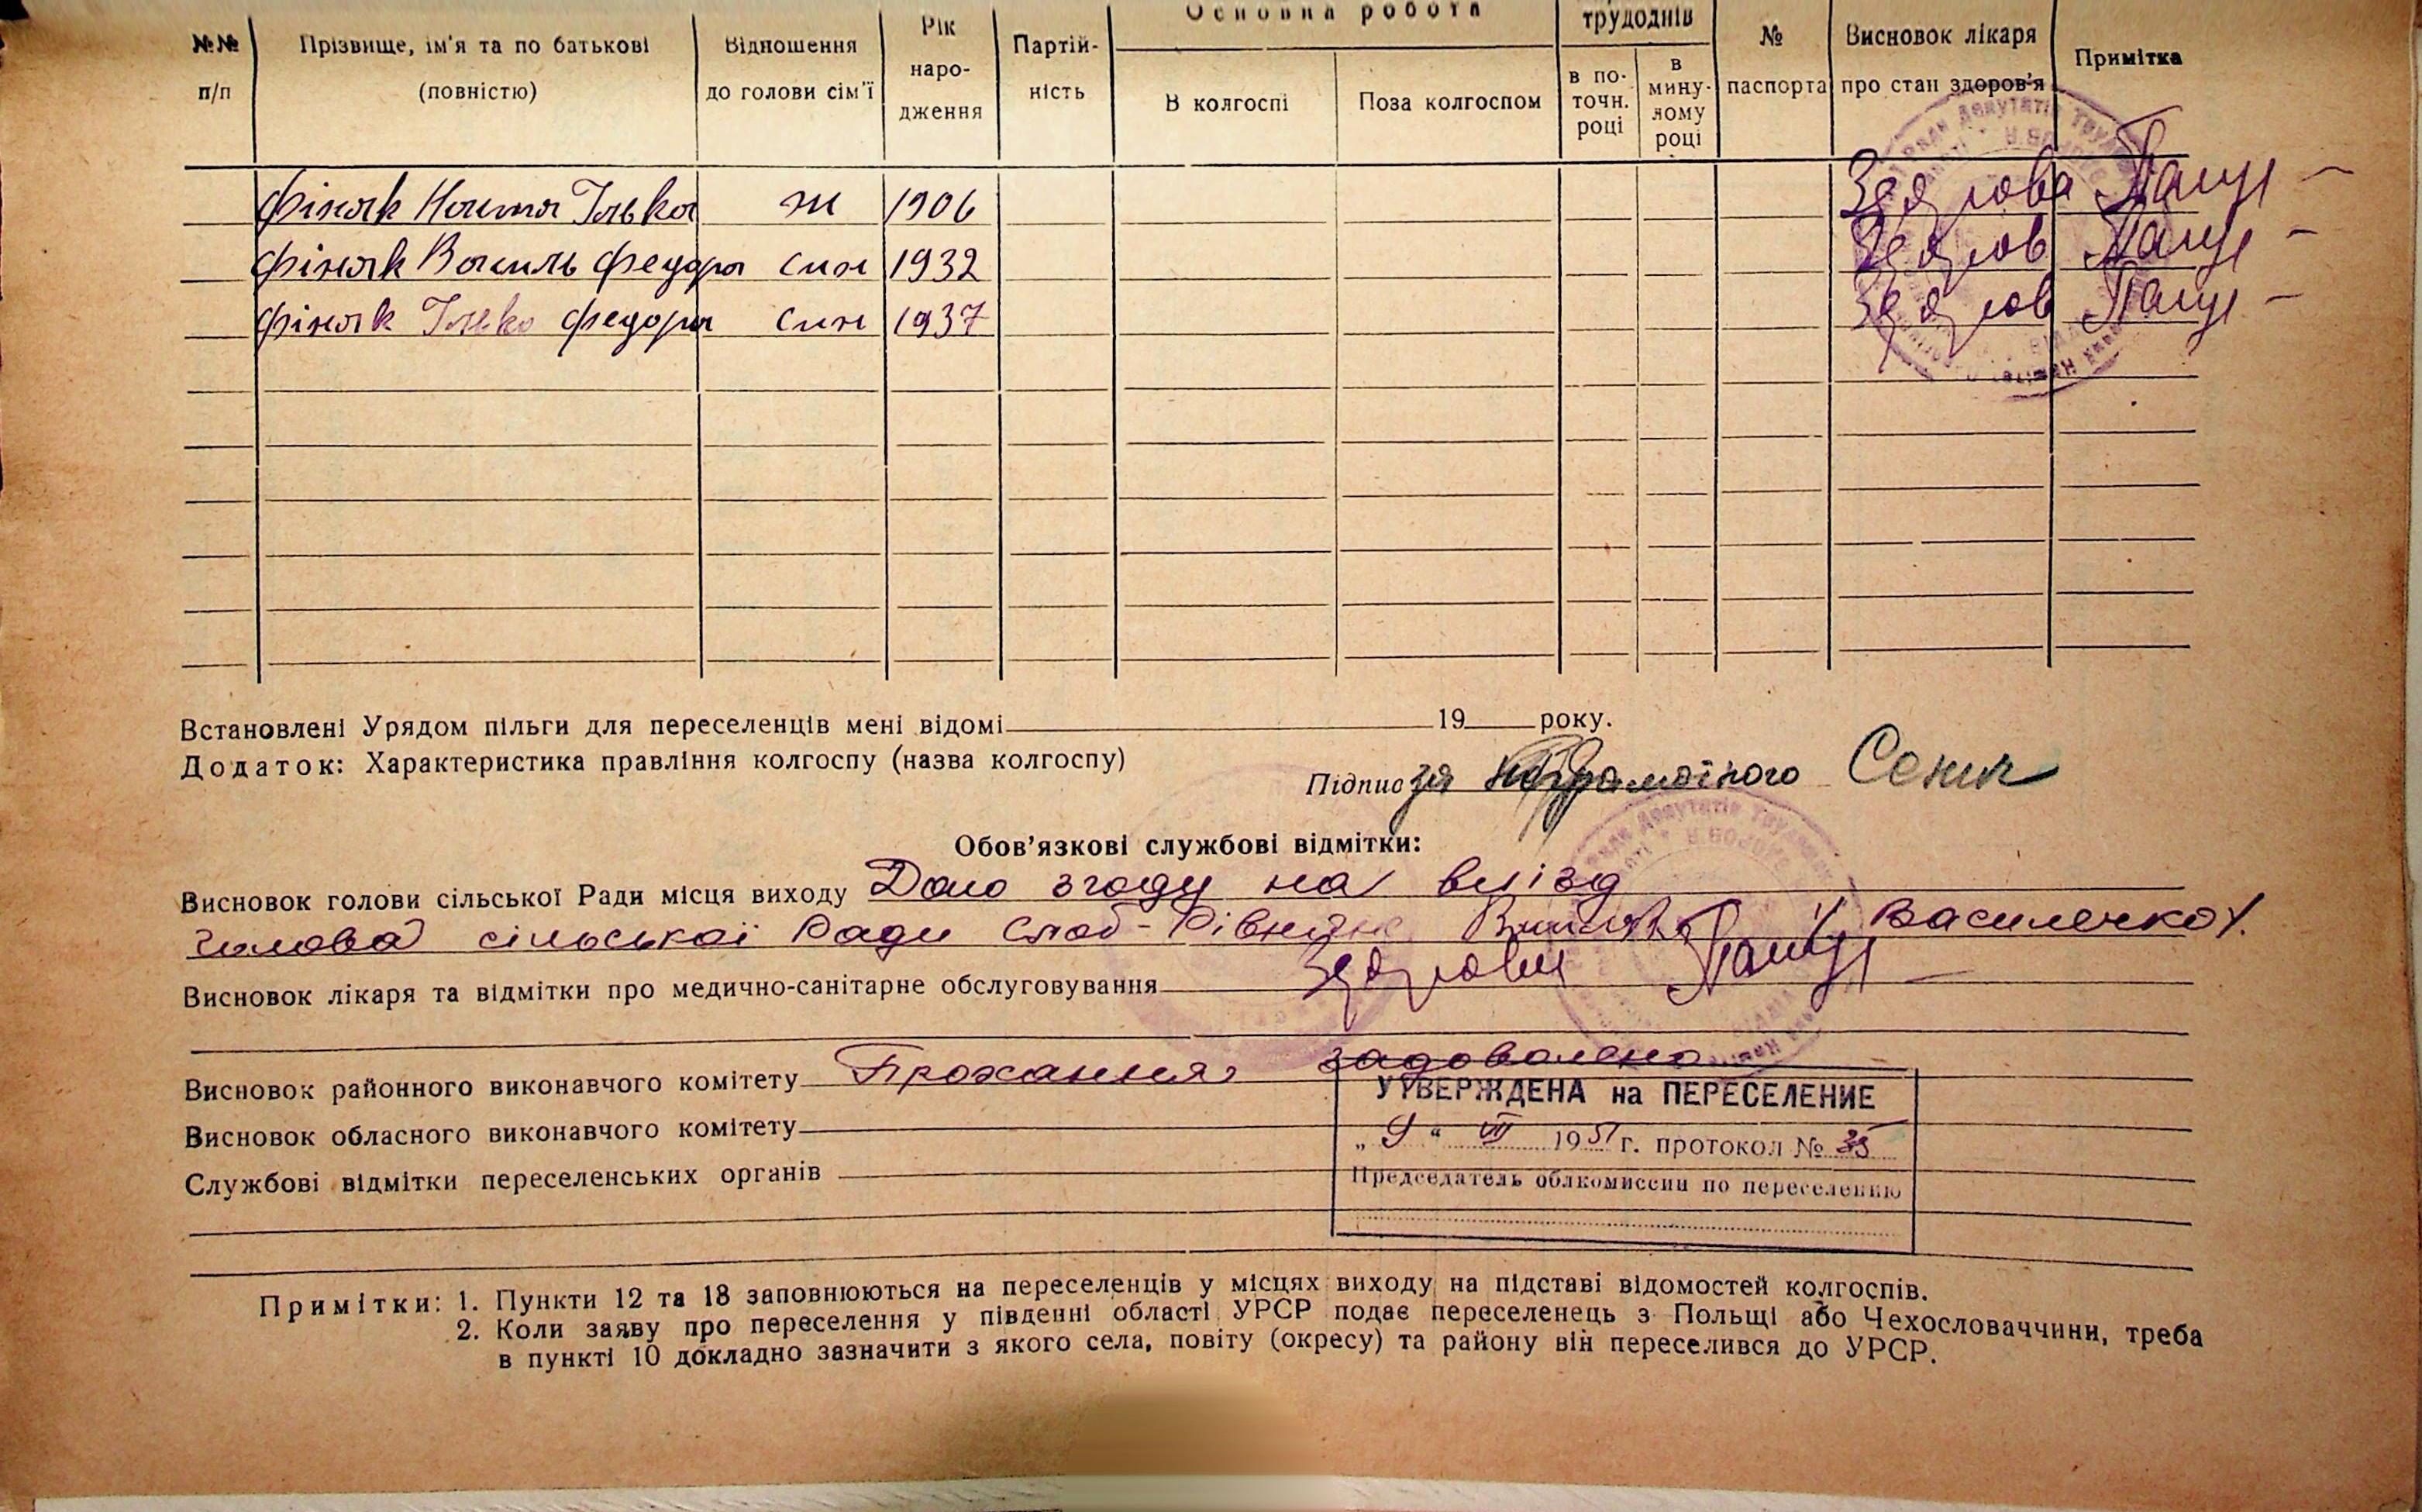 Основна робота
трудоднів
№№ п/п
Прізвище, ім'я та по батькові (повністю)
Відношення до голови сім'ї
Рік народження
Партійність
В колгоспі
Поза колгоспом
в поточн. році
в минулому році
№ паспорта
Висновок лікаря про стан здоров'я
Примітка
Фіняк Настя Ілька ж 1906 Здорова
Фіняк Василь Федора син 1932 Здоров
Фіняк Ілько Федора син 1937 Здоров
Встановлені Урядом пільги для переселенців мені відомі 19 року.
Додаток: Характеристика правління колгоспу (назва колгоспу)
Підпис за неграмотного Сеник
Обов'язкові службові відмітки:
Висновок голови сільської Ради місця виходу Даю згоду на виїзд
голова сільської Ради Василечко
Висновок лікаря та відмітки про медично-санітарне обслуговування Здорови
Висновок районного виконавчого комітету Прохання задоволено
УТВЕРЖДЕНА на ПЕРЕСЕЛЕНИЕ
Висновок обласного виконавчого комітету
„ 9 “ VII 1951 г. протокол № 35
Службові відмітки переселенських органів
Председатель облкомиссии по переселению
Примітки: 1. Пункти 12 та 18 заповнюються на переселенців у місцях виходу на підставі відомостей колгоспів.
2. Коли заяву про переселення у південні області УРСР подає переселенець з Польщі або Чехословаччини, треба
в пункті 10 докладно зазначити з якого села, повіту (окресу) та району він переселився до УРСР.